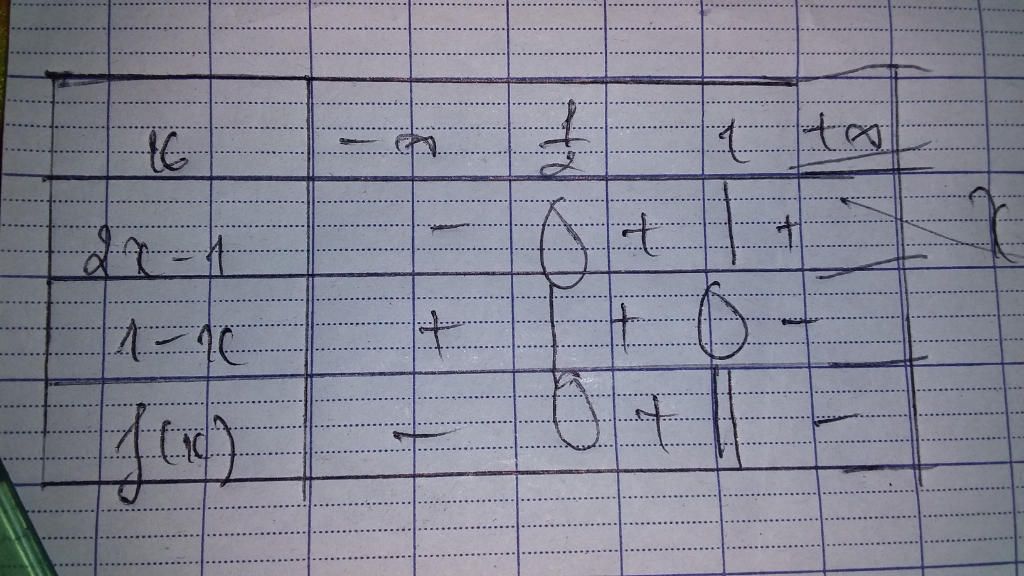 x -∞ 1/2 1 +∞
2x-1 - 0 + | + x
1-x + | + 0 -
f(x) - 0 + || -